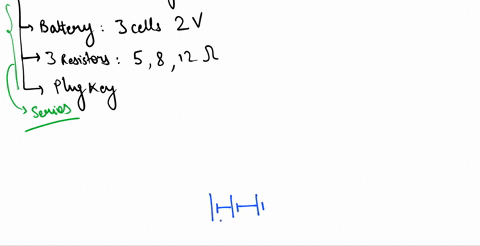 Battery : 3 cells 2 V
3 Resistors : 5, 8, 12 Ω
Plug Key
Series